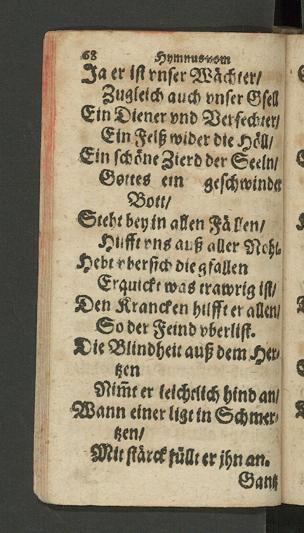 68 Hymnus vom
Ja er ist vnser Wächter/
Zugleich auch vnser Gsell
Ein Diener vnd Verfechter/
Ein Felß wider die Höll/
Ein schöne Zierd der Seeln/
Gottes ein geschwinder
Bott/
Steht bey in allen Fällen/
Hilfft vns auß aller Noht.
Hebt vbersich die gfallen
Erquickt was trawrig ist/
Den Krancken hilfft er allen/
So der Feind vberlist.
Die Blindheit auß dem Her-
tzen
Nim̃t er leichtlich hind an/
Wann einer ligt in Schmer-
tzen/
Mit stärck füllt er jhn an.
Gantz